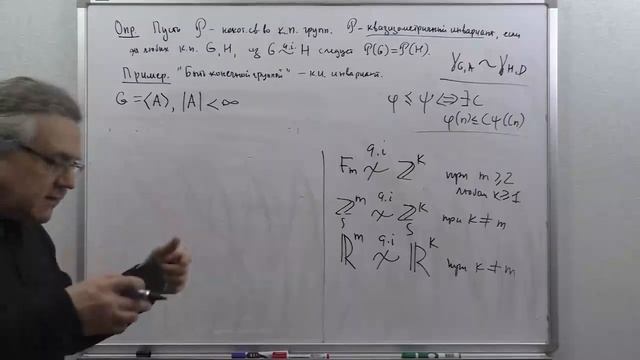 Опр. Пусть 𝒫 - некот. св-во к.п. групп. 𝒫 - квазиизометричный инвариант, если
для любых к.п. G, H, из G q.i.~ H следует 𝒫(G)=𝒫(H).
Пример. "Быть конечной группой" - к.и. инвариант.
G = ⟨A⟩, |A| < ∞
γ_{G,A} ~ γ_{H,D}
φ ≼ ψ ⟺ ∃ C
φ(n) ≤ C ψ(Cn)
F_m q.i.≁ ℤ^k при m ≥ 2
любом k ≥ 1
ℤ^m q.i.≁ ℤ^k при k ≠ m
ℝ^m q.i.≁ ℝ^k при k ≠ m